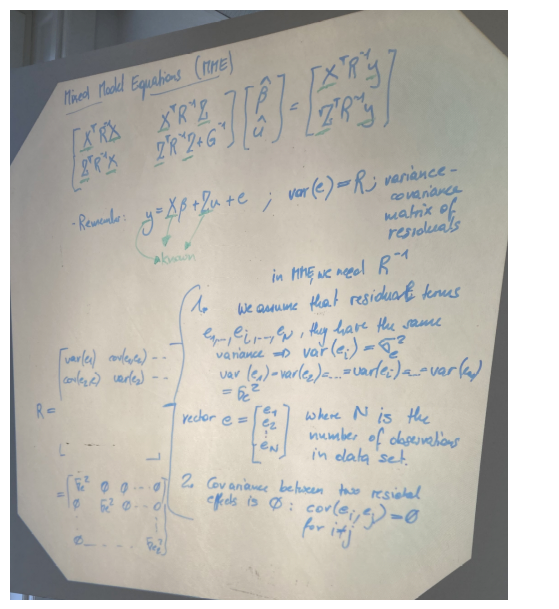 Mixed Model Equations (MME)
[XᵀR⁻¹X XᵀR⁻¹Z] [β̂] = [XᵀR⁻¹y]
[ZᵀR⁻¹X ZᵀR⁻¹Z+G⁻¹] [û] [ZᵀR⁻¹y]
- Remember: y = Xβ + Zu + e ; var(e) = R ; variance-
covariance
matrix of
residuals
known
in MME, we need R⁻¹
1. We assume that residual terms
e₁,...,eᵢ,...,e_N, they have the same
variance ⇒ var(eᵢ) = σₑ²
var(e₁)=var(e₂)=...=var(eᵢ)=...=var(e_N)
= σₑ²
vector e = [e₁ e₂ ⋮ e_N] where N is the
number of observations
in data set.
2. Covariance between two residual
effects is ∅ : cov(eᵢ,eⱼ) = ∅
for i≠j
R = [var(e₁) cov(e₁,e₂) --
cov(e₂,e₁) var(e₂) --
]
= [σₑ² ∅ ∅ ... ∅
∅ σₑ² ∅ ... ∅
⋮ ⋮
∅ ..... σₑ²]